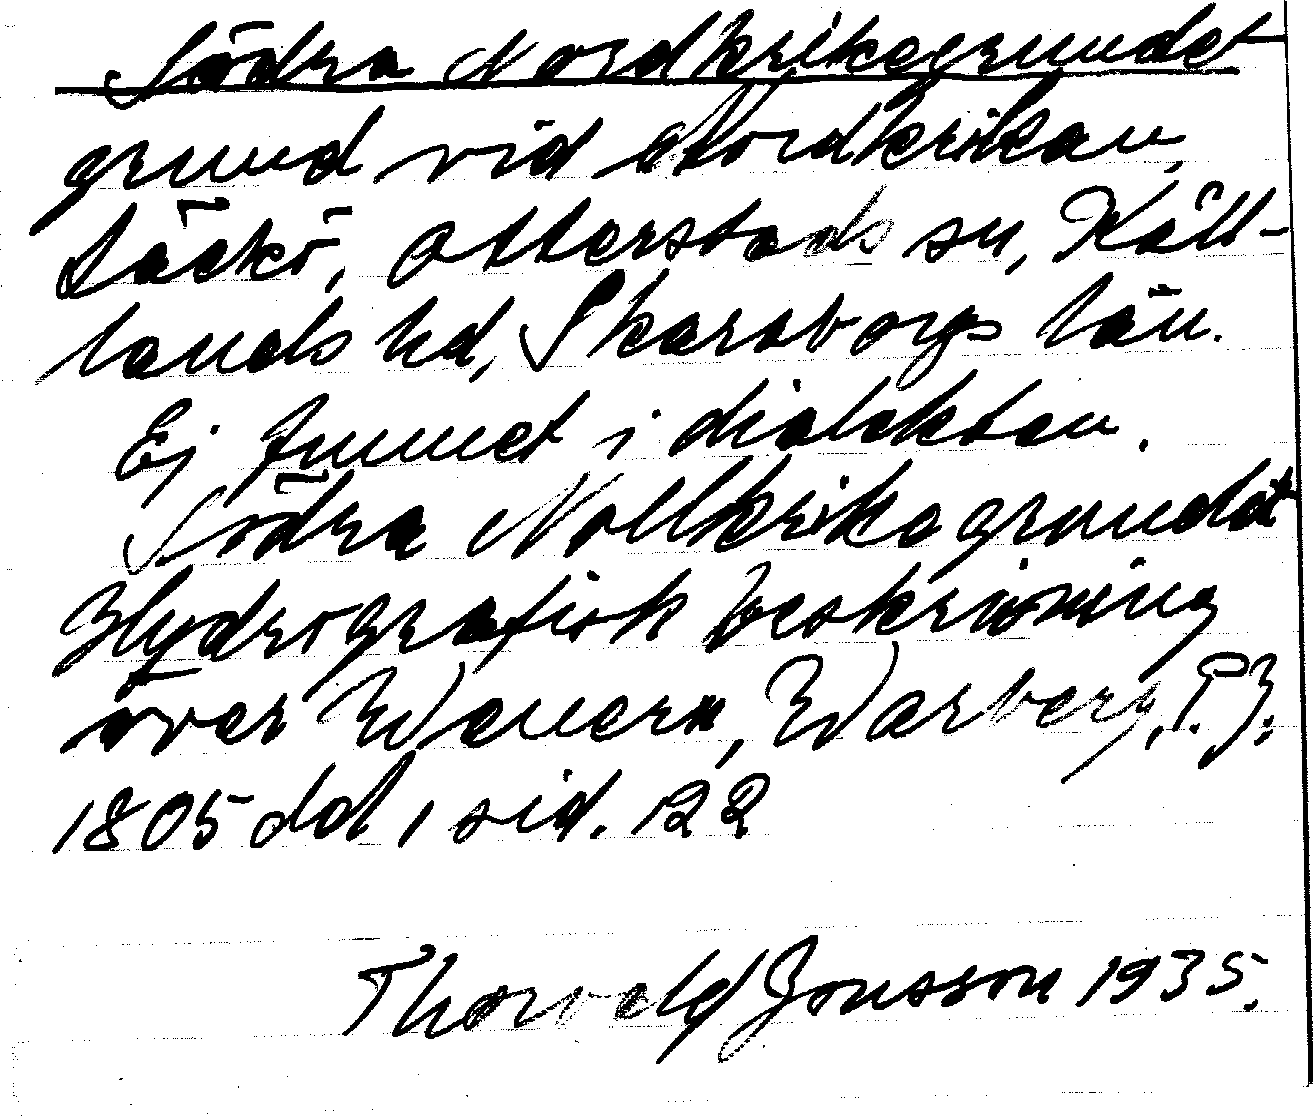 Södra Nordkrikegrundet
grund vid Nordkrikan,
Läckö, Otterstads sn, Kåll-
lands hd, Skaraborgs län.
Ej funnet i dialekten.
Södra Nollkrikegrundet
Hydrografisk beskrivning
över Wenern, Warberg, P. J.
1805 del 1 sid. 122
Thorvald Jonsson 1935.